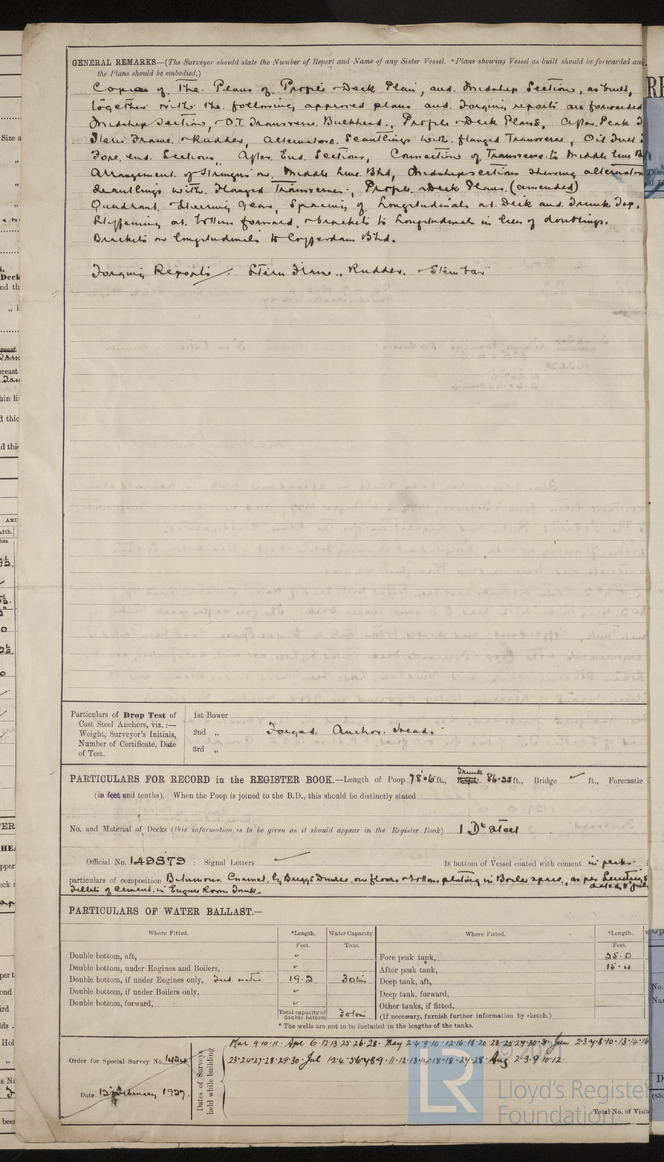 GENERAL REMARKS—(The Surveyor should state the Number of Report and Name of any Sister Vessel. *Plans showing Vessel as built should be forwarded and
the Plans should be embodied.)
Copies of the Plans of Profile & Deck Plan, and Midship Section, as built,
together with the following approved plans and Forging reports are forwarded
Midship Section, O.T. Transverse Bulkhead, Profile & Deck Plans, After Peak
Stern Frame & Rudder, alternative Scantlings with flanged Transverse, Oil Fuel
Fore end Sections, After End Sections, Connection of Transverse to Middle Line
Arrangement of Stringers on Middle Line Bhd, Midship sections showing alternative
Scantlings with Flanged Transverses, Profile & Deck Plans (amended)
Quadrant & Steering Gear, Spacing of Longitudinals at Deck and Trunk Top.
Stiffening at bottom forward, brackets to Longitudinals in lieu of doublings.
Brackets on longitudinals to Cofferdam Bhd.
Forging Reports Stern Frame, Rudder, Stem bar
Particulars of Drop Test of
Cast Steel Anchors, viz.:—
Weight, Surveyor's Initials,
Number of Certificate, Date
of Test.
1st Bower
2nd „ Forged Anchor Heads
3rd „
PARTICULARS FOR RECORD in the REGISTER BOOK.—Length of Poop 78.16 ft., Trunk 86.25 ft., Bridge ft., Forecastle
(in feet and tenths). When the Poop is joined to the B.D., this should be distinctly stated
No. and Material of Decks (this information is to be given as it should appear in the Register Book) 1 Dk Steel
Official No. 149879 : Signal Letters Is bottom of Vessel coated with cement in peaks
particulars of composition Bitumous Enamel, by Briggs Dundee, on floors & bottom plating in Boiler space, as per
fillets of cement in Engine Room Tank.
PARTICULARS OF WATER BALLAST.—
Where Fitted. *Length. Water Capacity. Where Fitted. *Length.
Feet. Tons. Feet.
Double bottom, aft, Fore peak tank, 25.0
Double bottom, under Engines and Boilers, After peak tank,
Double bottom, if under Engines only, 19.2 30 Deep tank, aft,
Double bottom, if under Boilers only, Deep tank, forward,
Double bottom, forward, Other tanks, if fitted,
Total capacity of double bottom 30 (If necessary, furnish further information by sketch.)
* The wells are not to be included in the lengths of the tanks.
Order for Special Survey No.
Date February 1927.
Dates of Surveys held while building
Mar 9.10.11. Apr 6.12.13.25.26.28. May 2.4.9.10.12.16.18.20.23.25.29.30.31 Jun 2.3.7.8.10.13.14.16
23.24.27.28.29.30. Jul 1.2.4.5.6.7.8.9.11.12.13.14.15.18.25.28. Aug 2.3.9.10.12.
Total No. of Visits
LR
Lloyd's Register
Foundation